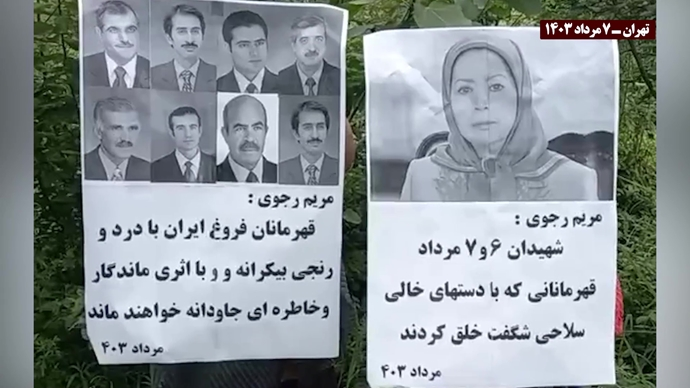 تهران ـ ۷ مرداد ۱۴۰۳
مریم رجوی :
قهرمانان فروغ ایران با درد و
رنجی بیکرانه و و با اثری ماندگار
وخاطره ای جاودانه خواهند ماند
مرداد ۴۰۳
مریم رجوی :
شهیدان ۶ و ۷ مرداد
قهرمانانی که با دستهای خالی
سلاحی شگفت خلق کردند
مرداد ۴۰۳